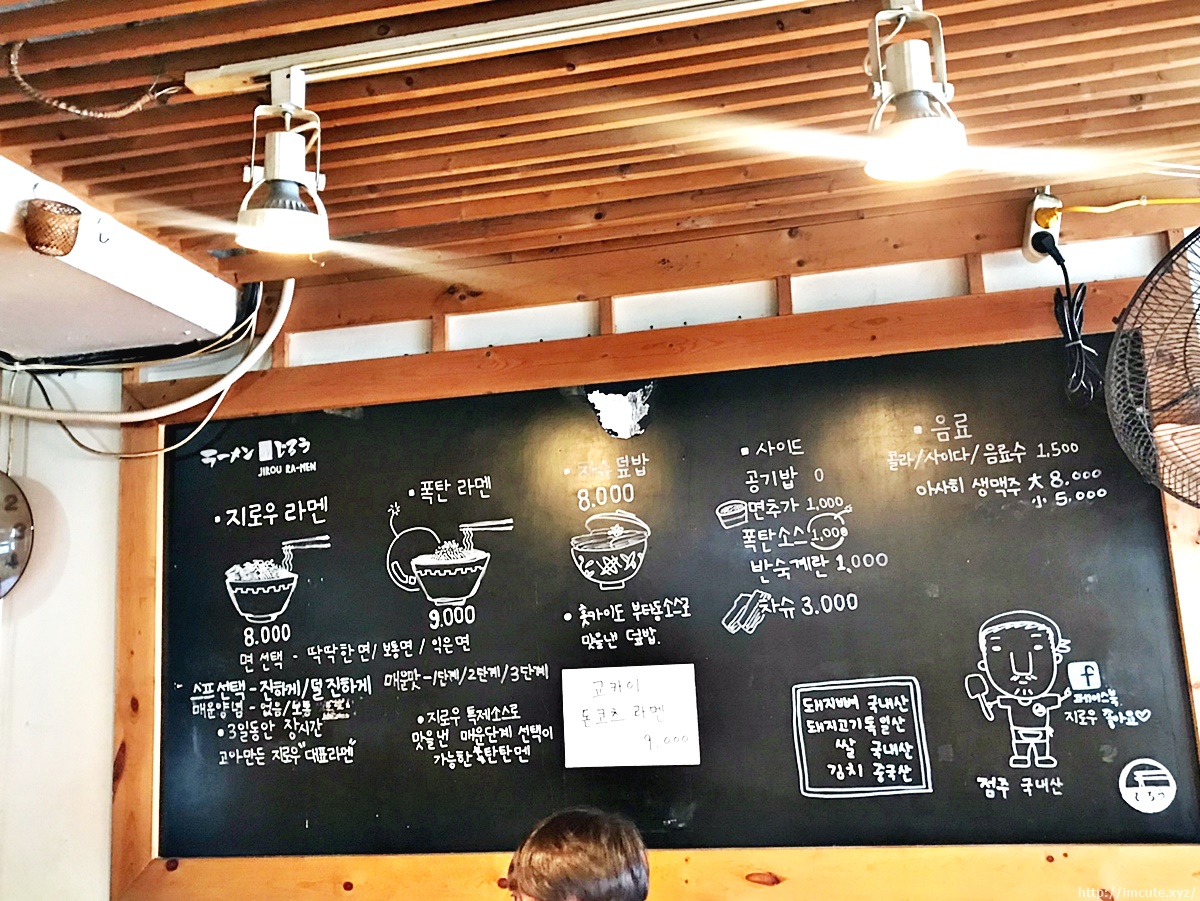 ラーメン 지로우
JIROU RA-MEN
▪지로우 라멘
8.000
▪폭탄 라멘
9.000
면 선택 - 딱딱한면/보통면/익은면
스프선택-진하게/덜진하게
매운양념-없음/보통
•3일동안 장시간
고아만든 지로우"대표라멘"
매운맛-1단계/2단계/3단계
•지로우 특제소스로
맛을낸 매운단계 선택이
가능한 탄탄멘
▪차슈 덮밥
8.000
•홋카이도 부타동소스로
맛을낸 덮밥.
교카이
돈코츠 라멘
9.000
▪사이드
공기밥 0
면추가 1,000
폭탄소스 1,000
반숙계란 1,000
차슈 3.000
▪음료
콜라/사이다/음료수 1.500
아사히 생맥주 大 8.000
小 5.000
돼지뼈 국내산
돼지고기 독일산
쌀 국내산
김치 중국산
f
페이스북
지로우 좋아요♡
점주 국내산
http://imcute.xyz/